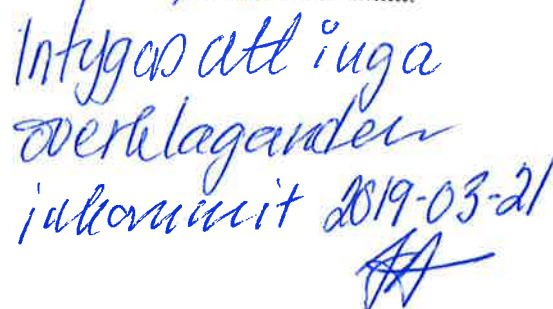 Intygas att inga
överklaganden
inkommit 2019-03-21